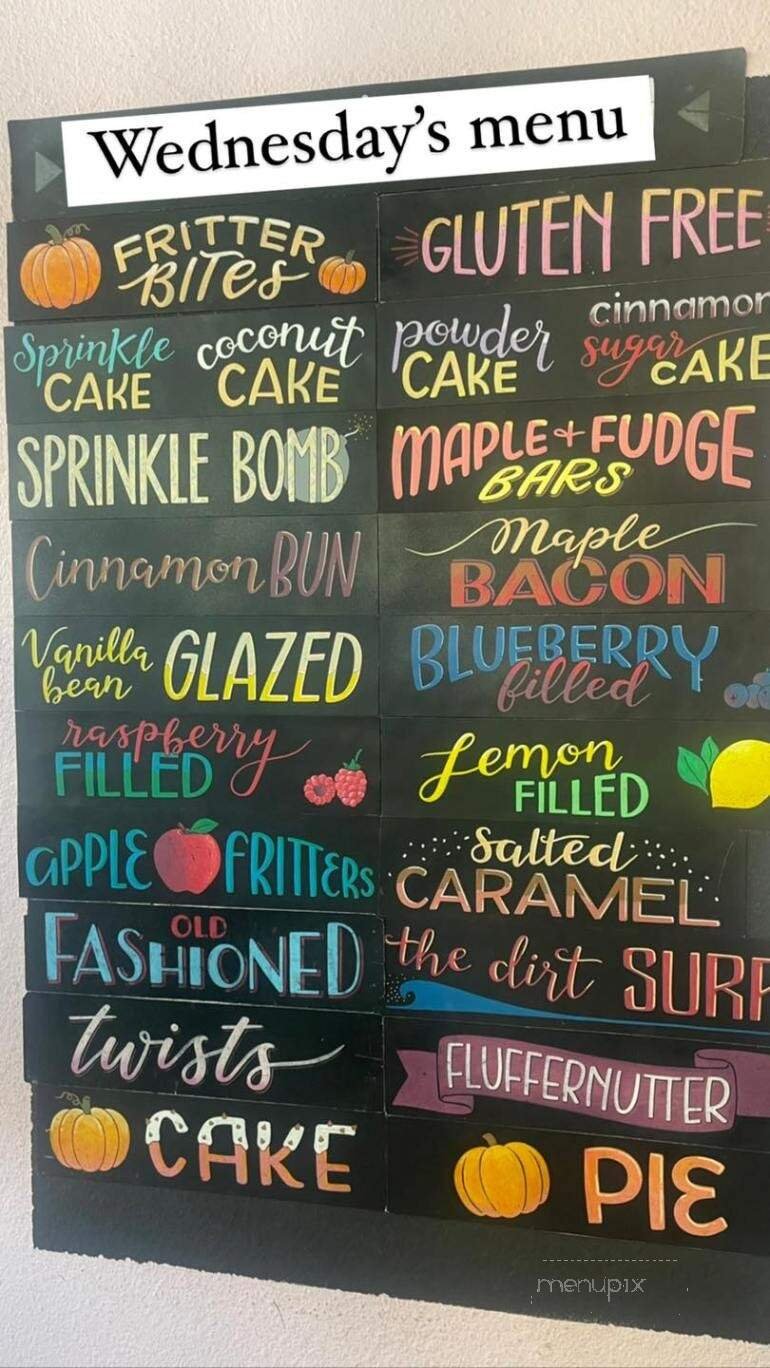 Wednesday's menu
FRITTER
BITES
Sprinkle coconut
CAKE CAKE
SPRINKLE BOMB
Cinnamon BUN
Vanilla bean GLAZED
raspberry
FILLED
APPLE FRITTERS
OLD
FASHIONED
twists
CAKE
GLUTEN FREE
powder
CAKE
cinnamon
sugar CAKE
MAPLE + FUDGE
BARS
Maple
BACON
BLUEBERRY
filled
Lemon
FILLED
Salted
CARAMEL
the dirt SURF
FLUFFERNUTTER
PIE
menupix